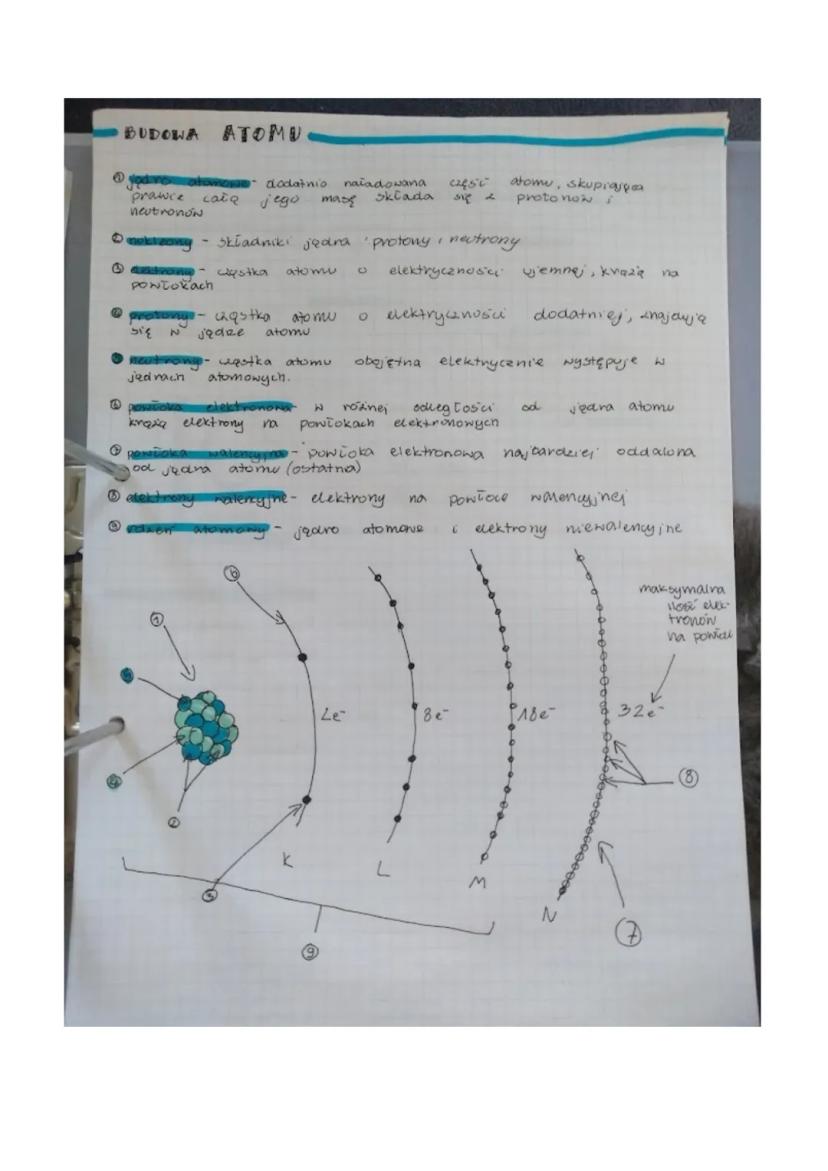 BUDOWA ATOMU
① jądro atomowe - dodatnio naładowana część atomu, skupiająca
prawie całą jego masę składa się z protonów i
neutronów
② nukleony - składniki jądra protony i neutrony
③ elektrony - cząstka atomu o elektryczności ujemnej, krążą na
powłokach
④ protony - cząstka atomu o elektryczności dodatniej, znajdują
się w jądze atomu
⑤ neutrony - cząstka atomu obojętna elektrycznie występuje w
jądrach atomowych.
⑥ powłoka elektronowa w różnej odległości od jądra atomu
krążą elektrony na powłokach elektronowych
⑦ powłoka walencyjna - powłoka elektronowa najbardziej oddalona
od jądra atomu (ostatnia)
⑧ elektrony walencyjne - elektrony na powłoce walencyjnej
⑨ rdzeń atomowy - jądro atomowe i elektrony niewalencyjne
⑥
maksymalna
ilość elek-
tronów
na powłoce
①
⑤
2e⁻
8e⁻
18e⁻
32e⁻
④
⑧
②
K
L
M
③
N
⑦
⑨